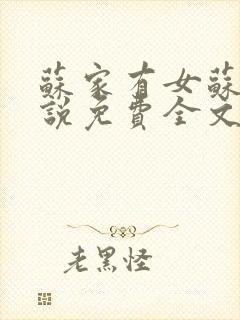 蘇家有女蘇
說免費全文
老黑怪